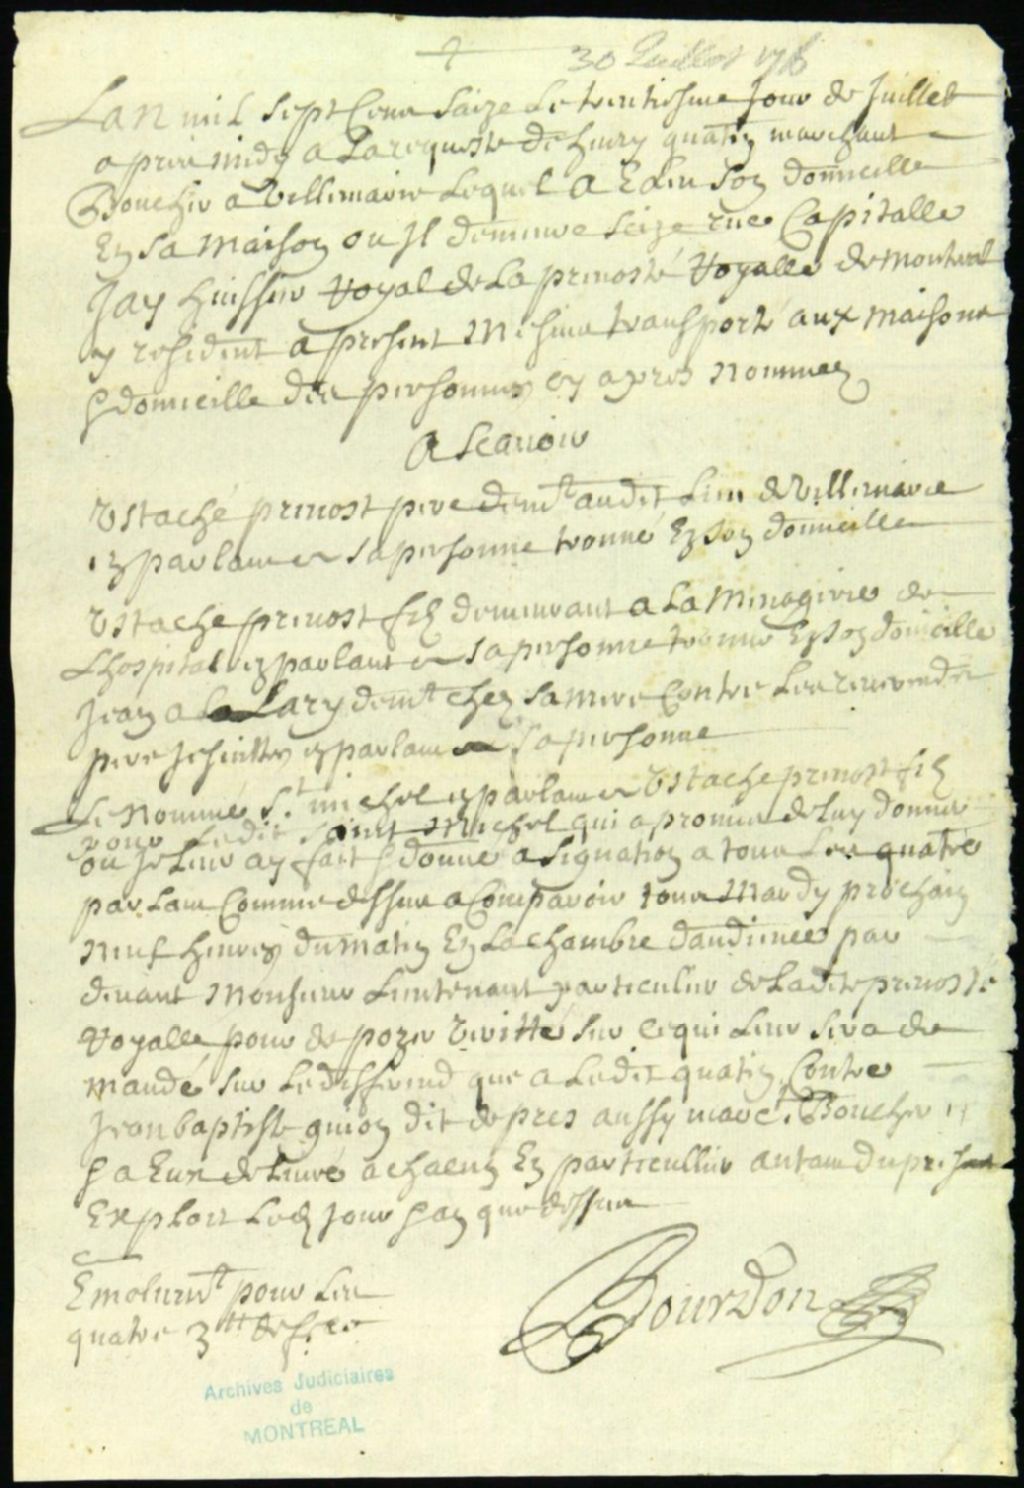 30 Juillet 1716
Lan mil sept Cens Saize Le trentiesme Jour de Juillet
apres midy a La requeste de henry quatin marchant
Boucher a Villemarie Lequel a Eslu son domicille
En sa maison ou Il demeure seize rue Capitalle
Jay huissier Royal de La prevosté Royalle de montreal
y resident a present Mesuis transporté aux maisons
& domicille des personnes cy apres nommez
A Scavoir
Ustaché prevost pere demt audit Lieu de Villemarie
en parlant a sa personne trouvé En son domicille
Ustache prevost filz demeurant a La Menagerie de
Lhospital en parlant a sa personne trouvé En son domicille
Jean a La Lary demt chez sa mere Contre Les reverendes
pere Jesuittes en parlant a sa personne
Le Nommé St michel en parlant a Ustache prevost filz
pour Ledit Saint Michel qui a promis de Luy donner
ou Je Leur ay fait & donné asignation a tous Les quatre
parlant Comme dessus a Comparoir Mardy prochain
neuf heures du matin En La chambre daudience par
devant Monsieur Lieutenant particulier de Ladite prevosté
Royalle pour depozer veritté sur ce qui Leur sera de
mandé sur Le differend que a Ledit quatin Contre
Jean baptiste guion dit depres aussy marct Boucher
& a Eux delivré a chacun En particullier autant du present
Exploit Led Jour & an que dessus
Emolumt pour Les
quatre 3tt
Bourdon
Archives Judiciaires
de
MONTREAL